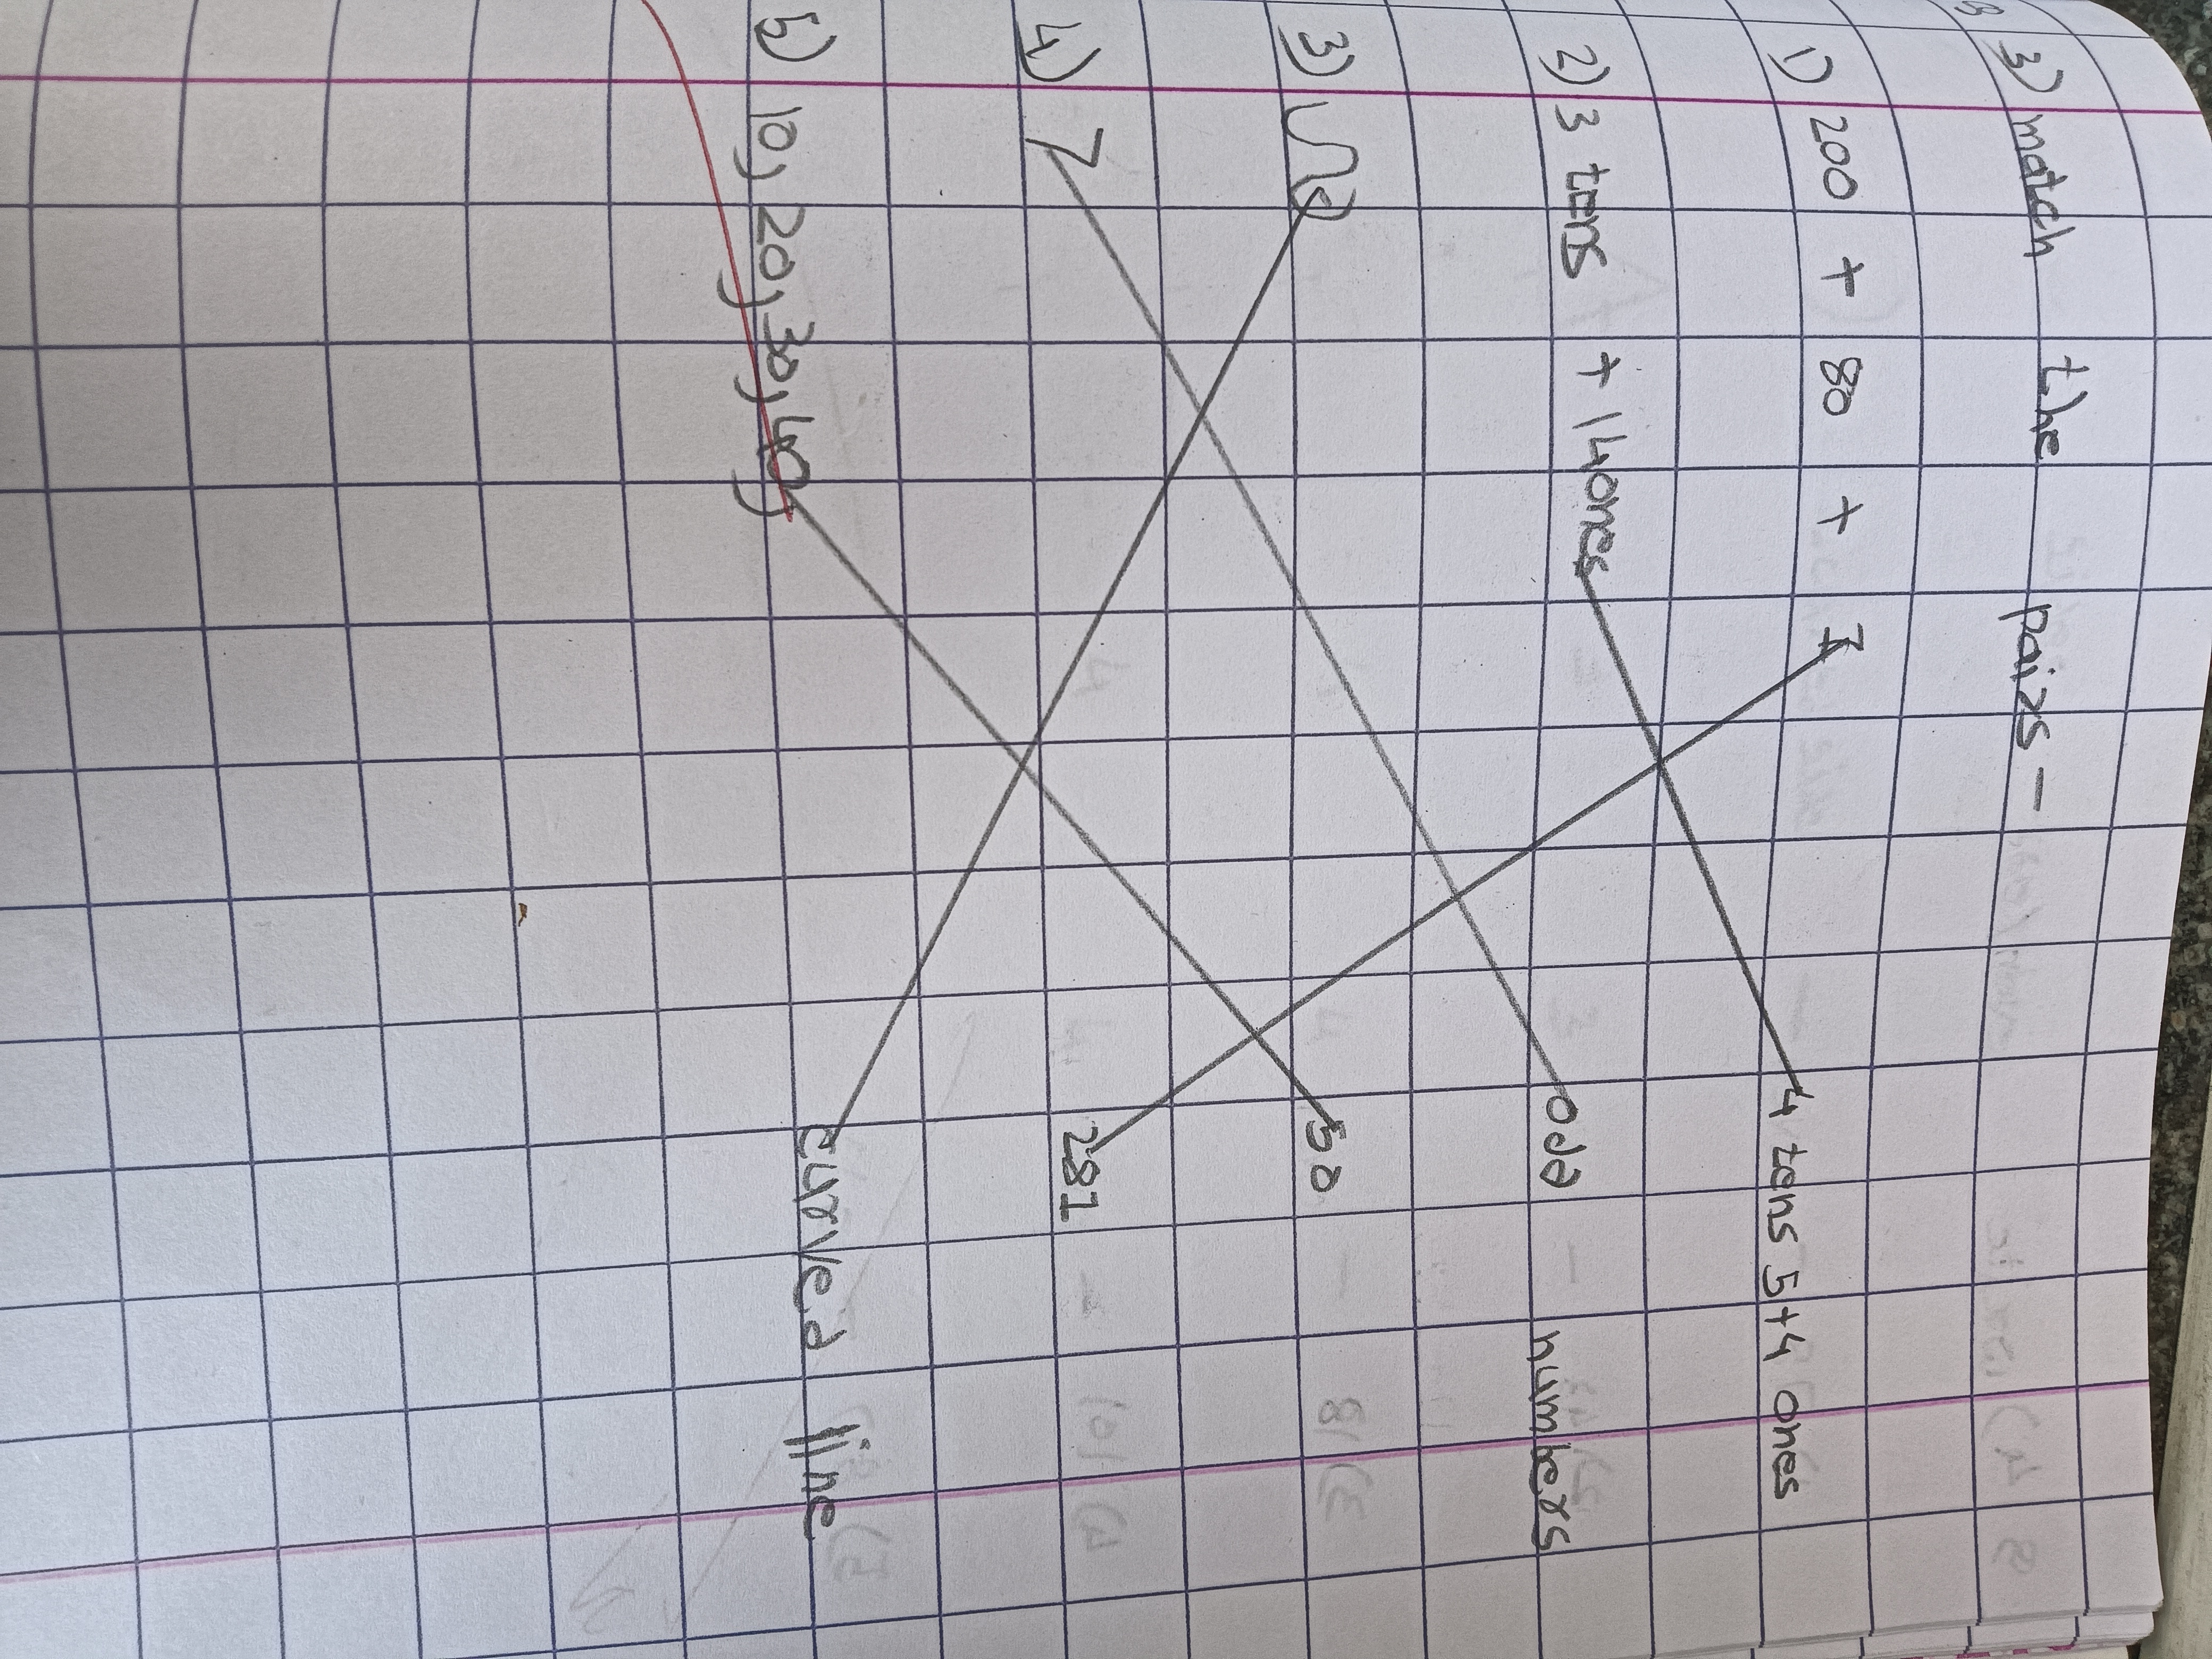 3) match the pairs -
1) 200 + 80 + 1 4 tens 5+4 ones
2) 3 tens + 14ones odd numbers
3) 50
4) 7 281
5) 10, 20, 30, 40, curved line